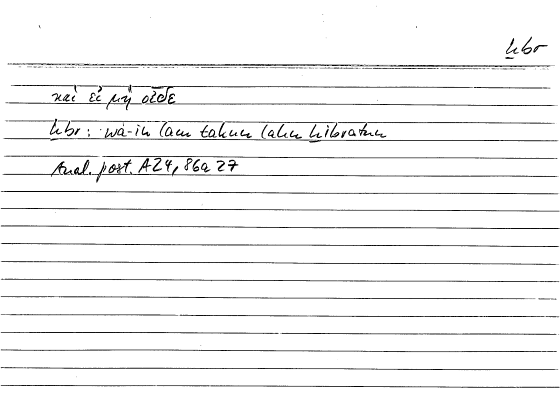 ḫbr
καὶ εἰ μὴ οἶδε
ḫbr: wa-in lam takun lahu ḫibratun
Anal. post. A24, 86a27